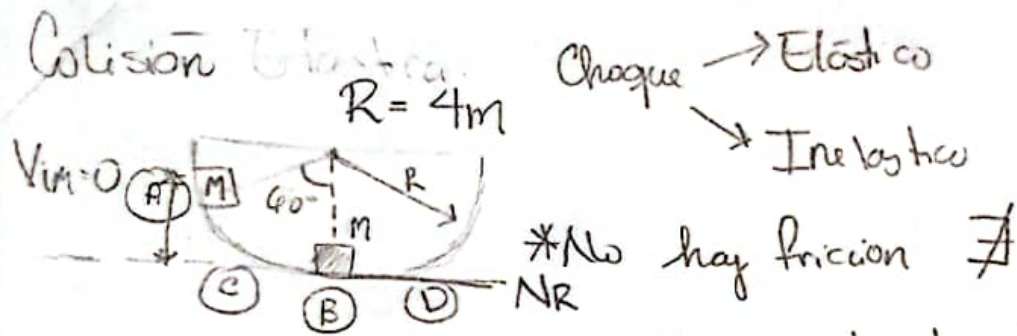 Colisión Elastica.
Choque → Elástico
↘ Inelastico
R = 4m
Vim=0 A M
60° R
M
*No hay friccion ∄
C B D NR